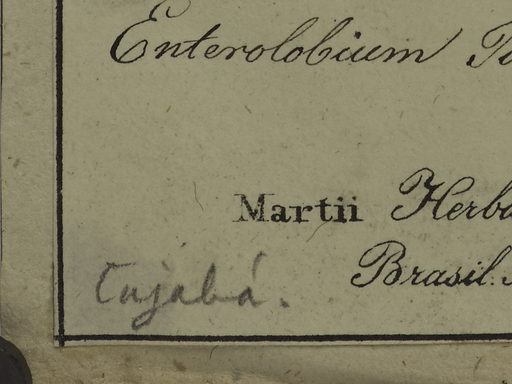 Enterolobium Ti
Martii Herba
Brasil.
Cujabá.